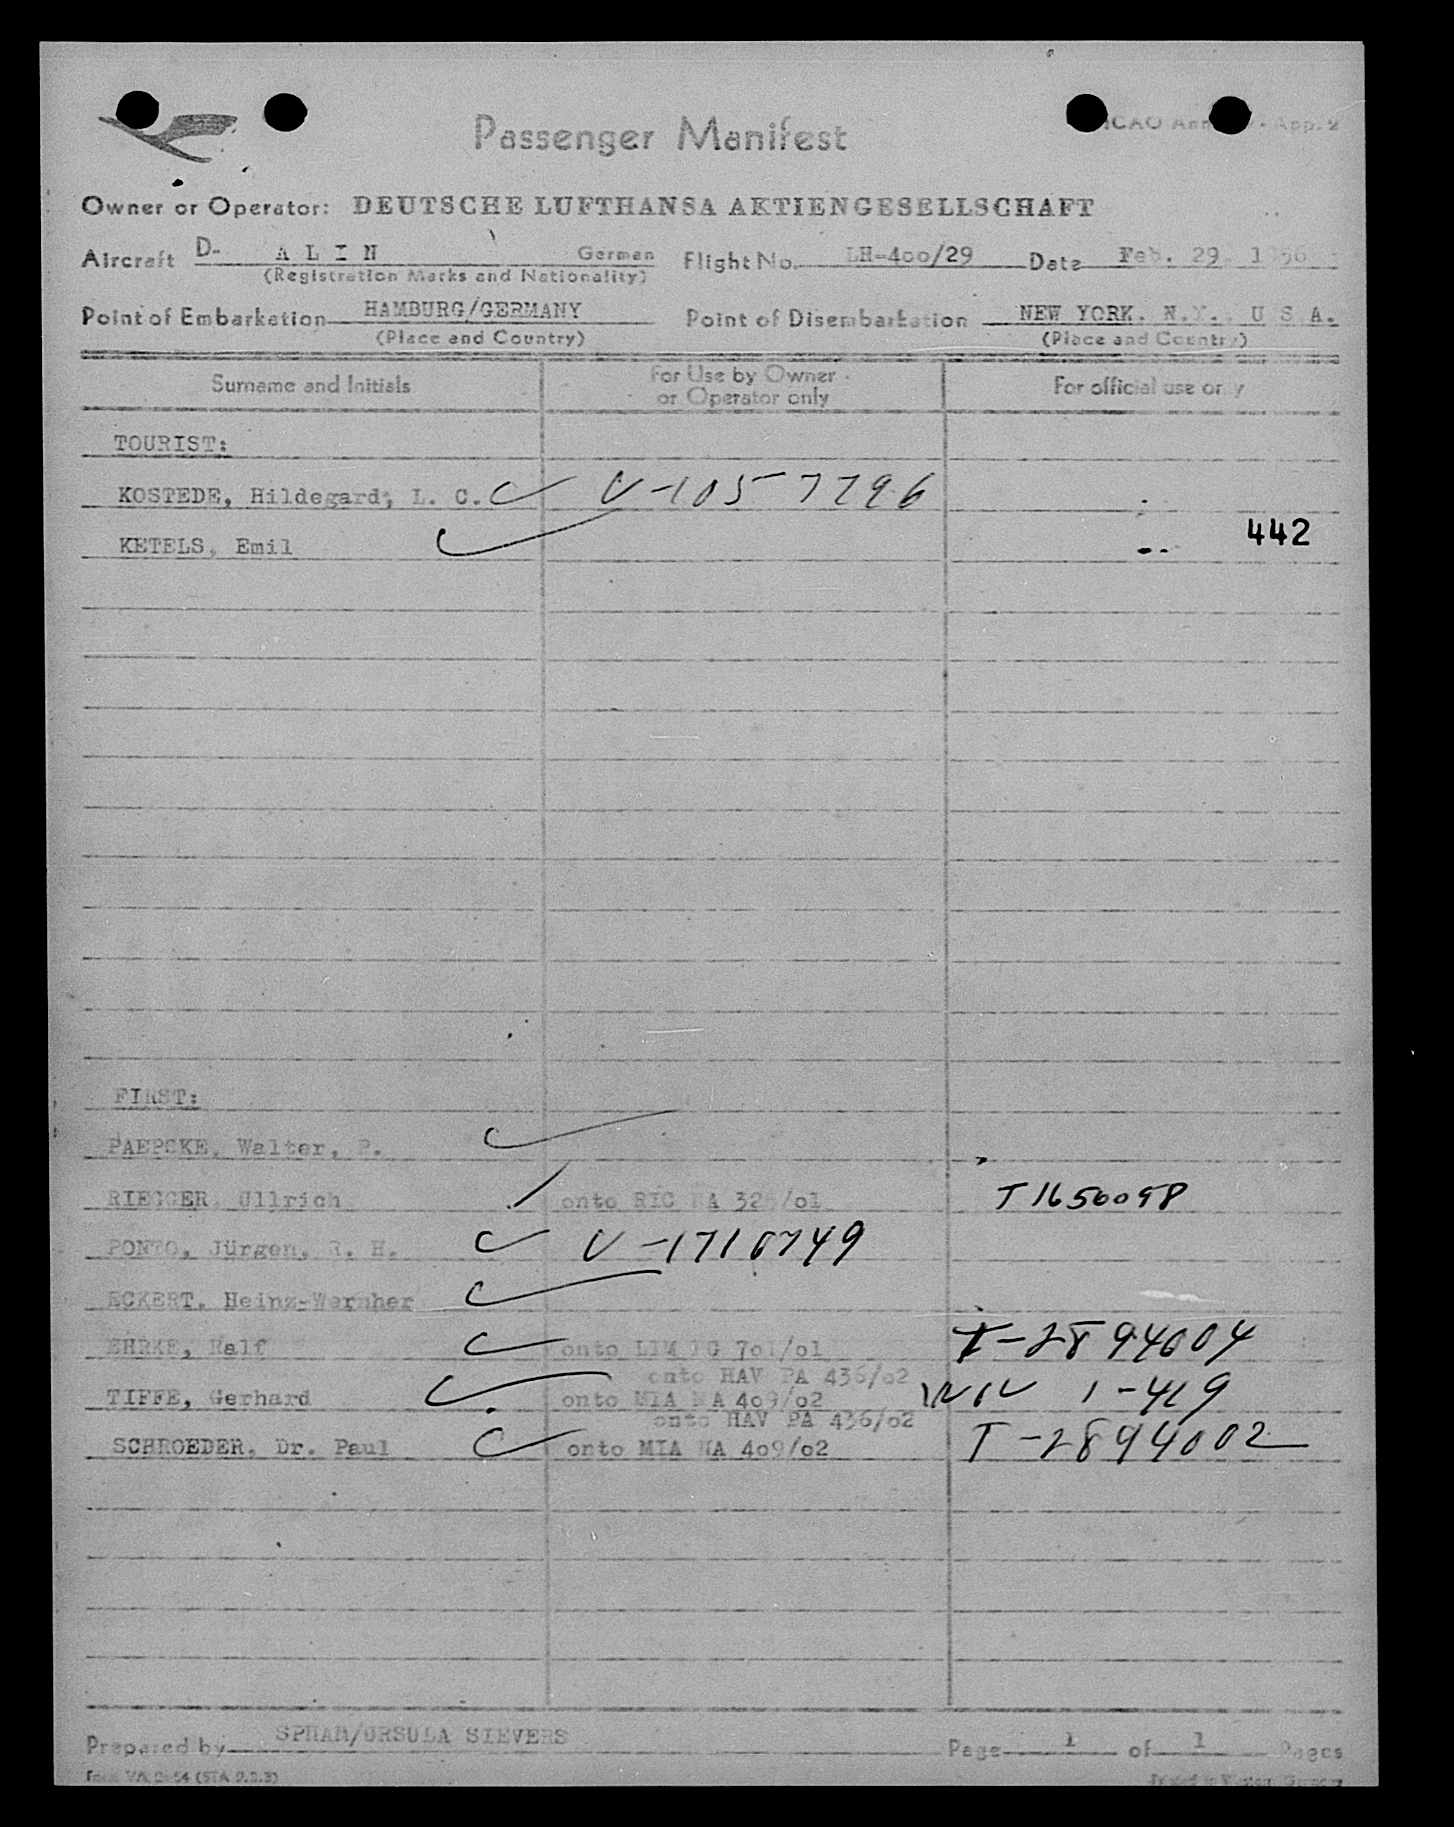 Passenger Manifest
ICAO
App. 2
Owner or Operator: DEUTSCHE LUFTHANSA AKTIENGESELLSCHAFT
Aircraft D- A L I N German Flight No. LH-400/29 Date Feb. 29. 1956
(Registration Marks and Nationality)
Point of Embarkation HAMBURG/GERMANY Point of Disembarkation NEW YORK. N.Y. U S A.
(Place and Country) (Place and Country)
Surname and Initials For Use by Owner or Operator only For official use only
TOURIST:
KOSTEDE, Hildegard, L. C. V-1057796
KETELS, Emil 442
FIRST:
PAEPCKE, Walter, P.
RIEGGER, Ullrich onto RIC /o1 T1650098
PONTO, Jürgen, H. V-1710749
ECKERT, Heinz-Wernher
EHRKE, Ralf onto LIM 7o1/o1 T-2894004
onto HAV PA 436/o2
TIFFE, Gerhard onto MIA NA 4o9/o2 1-419
onto HAV PA 436/o2
SCHROEDER, Dr. Paul onto MIA NA 4o9/o2 T-2894002
Prepared by SPHAM/URSULA SIEVERS Page 1 of 1 Pages